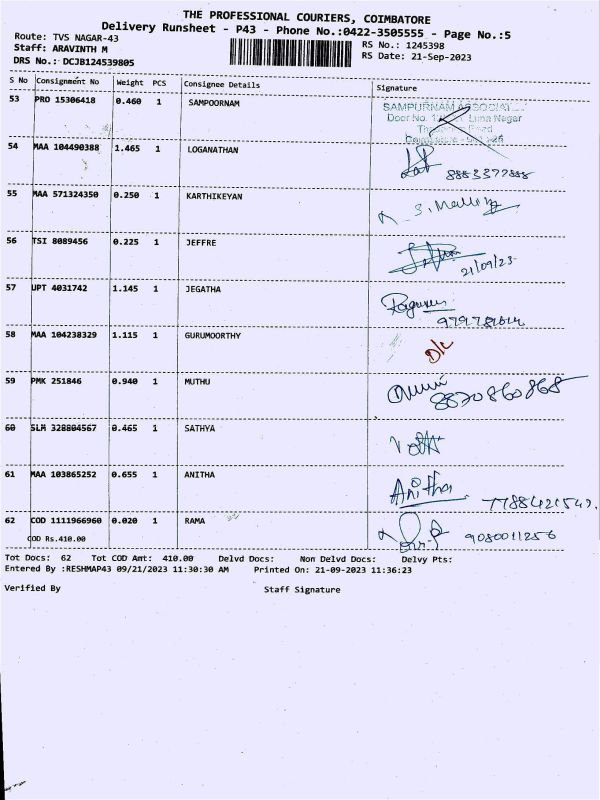 THE PROFESSIONAL COURIERS, COIMBATORE
Delivery Runsheet - P43 - Phone No.:0422-3505555 - Page No.:5
Route: TVS NAGAR-43
Staff: ARAVINTH M
DRS No.: DCJB124539805
RS No.: 1245398
RS Date: 21-Sep-2023
S No Consignment No Weight PCS Consignee Details Signature
53 PRO 15306418 0.460 1 SAMPOORNAM
SAMPURNAM ASSOCIAT
Door No. Luna Nagar
54 MAA 104490388 1.465 1 LOGANATHAN
55 MAA 571324350 0.250 1 KARTHIKEYAN
56 TSI 8089456 0.225 1 JEFFRE
21/09/23
57 UPT 4031742 1.145 1 JEGATHA
58 MAA 104238329 1.115 1 GURUMOORTHY D/L
59 PMK 251846 0.940 1 MUTHU 8870860868
60 SLM 328804567 0.465 1 SATHYA
61 MAA 103865252 0.655 1 ANITHA Anitha
62 COD 1111966960 0.020 1 RAMA 9080011256
COD Rs.410.00
Tot Docs: 62 Tot COD Amt: 410.00 Delvd Docs: Non Delvd Docs: Delvy Pts:
Entered By :RESHMAP43 09/21/2023 11:30:30 AM Printed On: 21-09-2023 11:36:23
Verified By Staff Signature